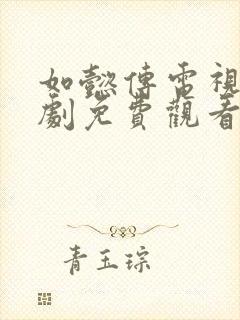 如懿傳電視
劇免費觀看
青玉琮